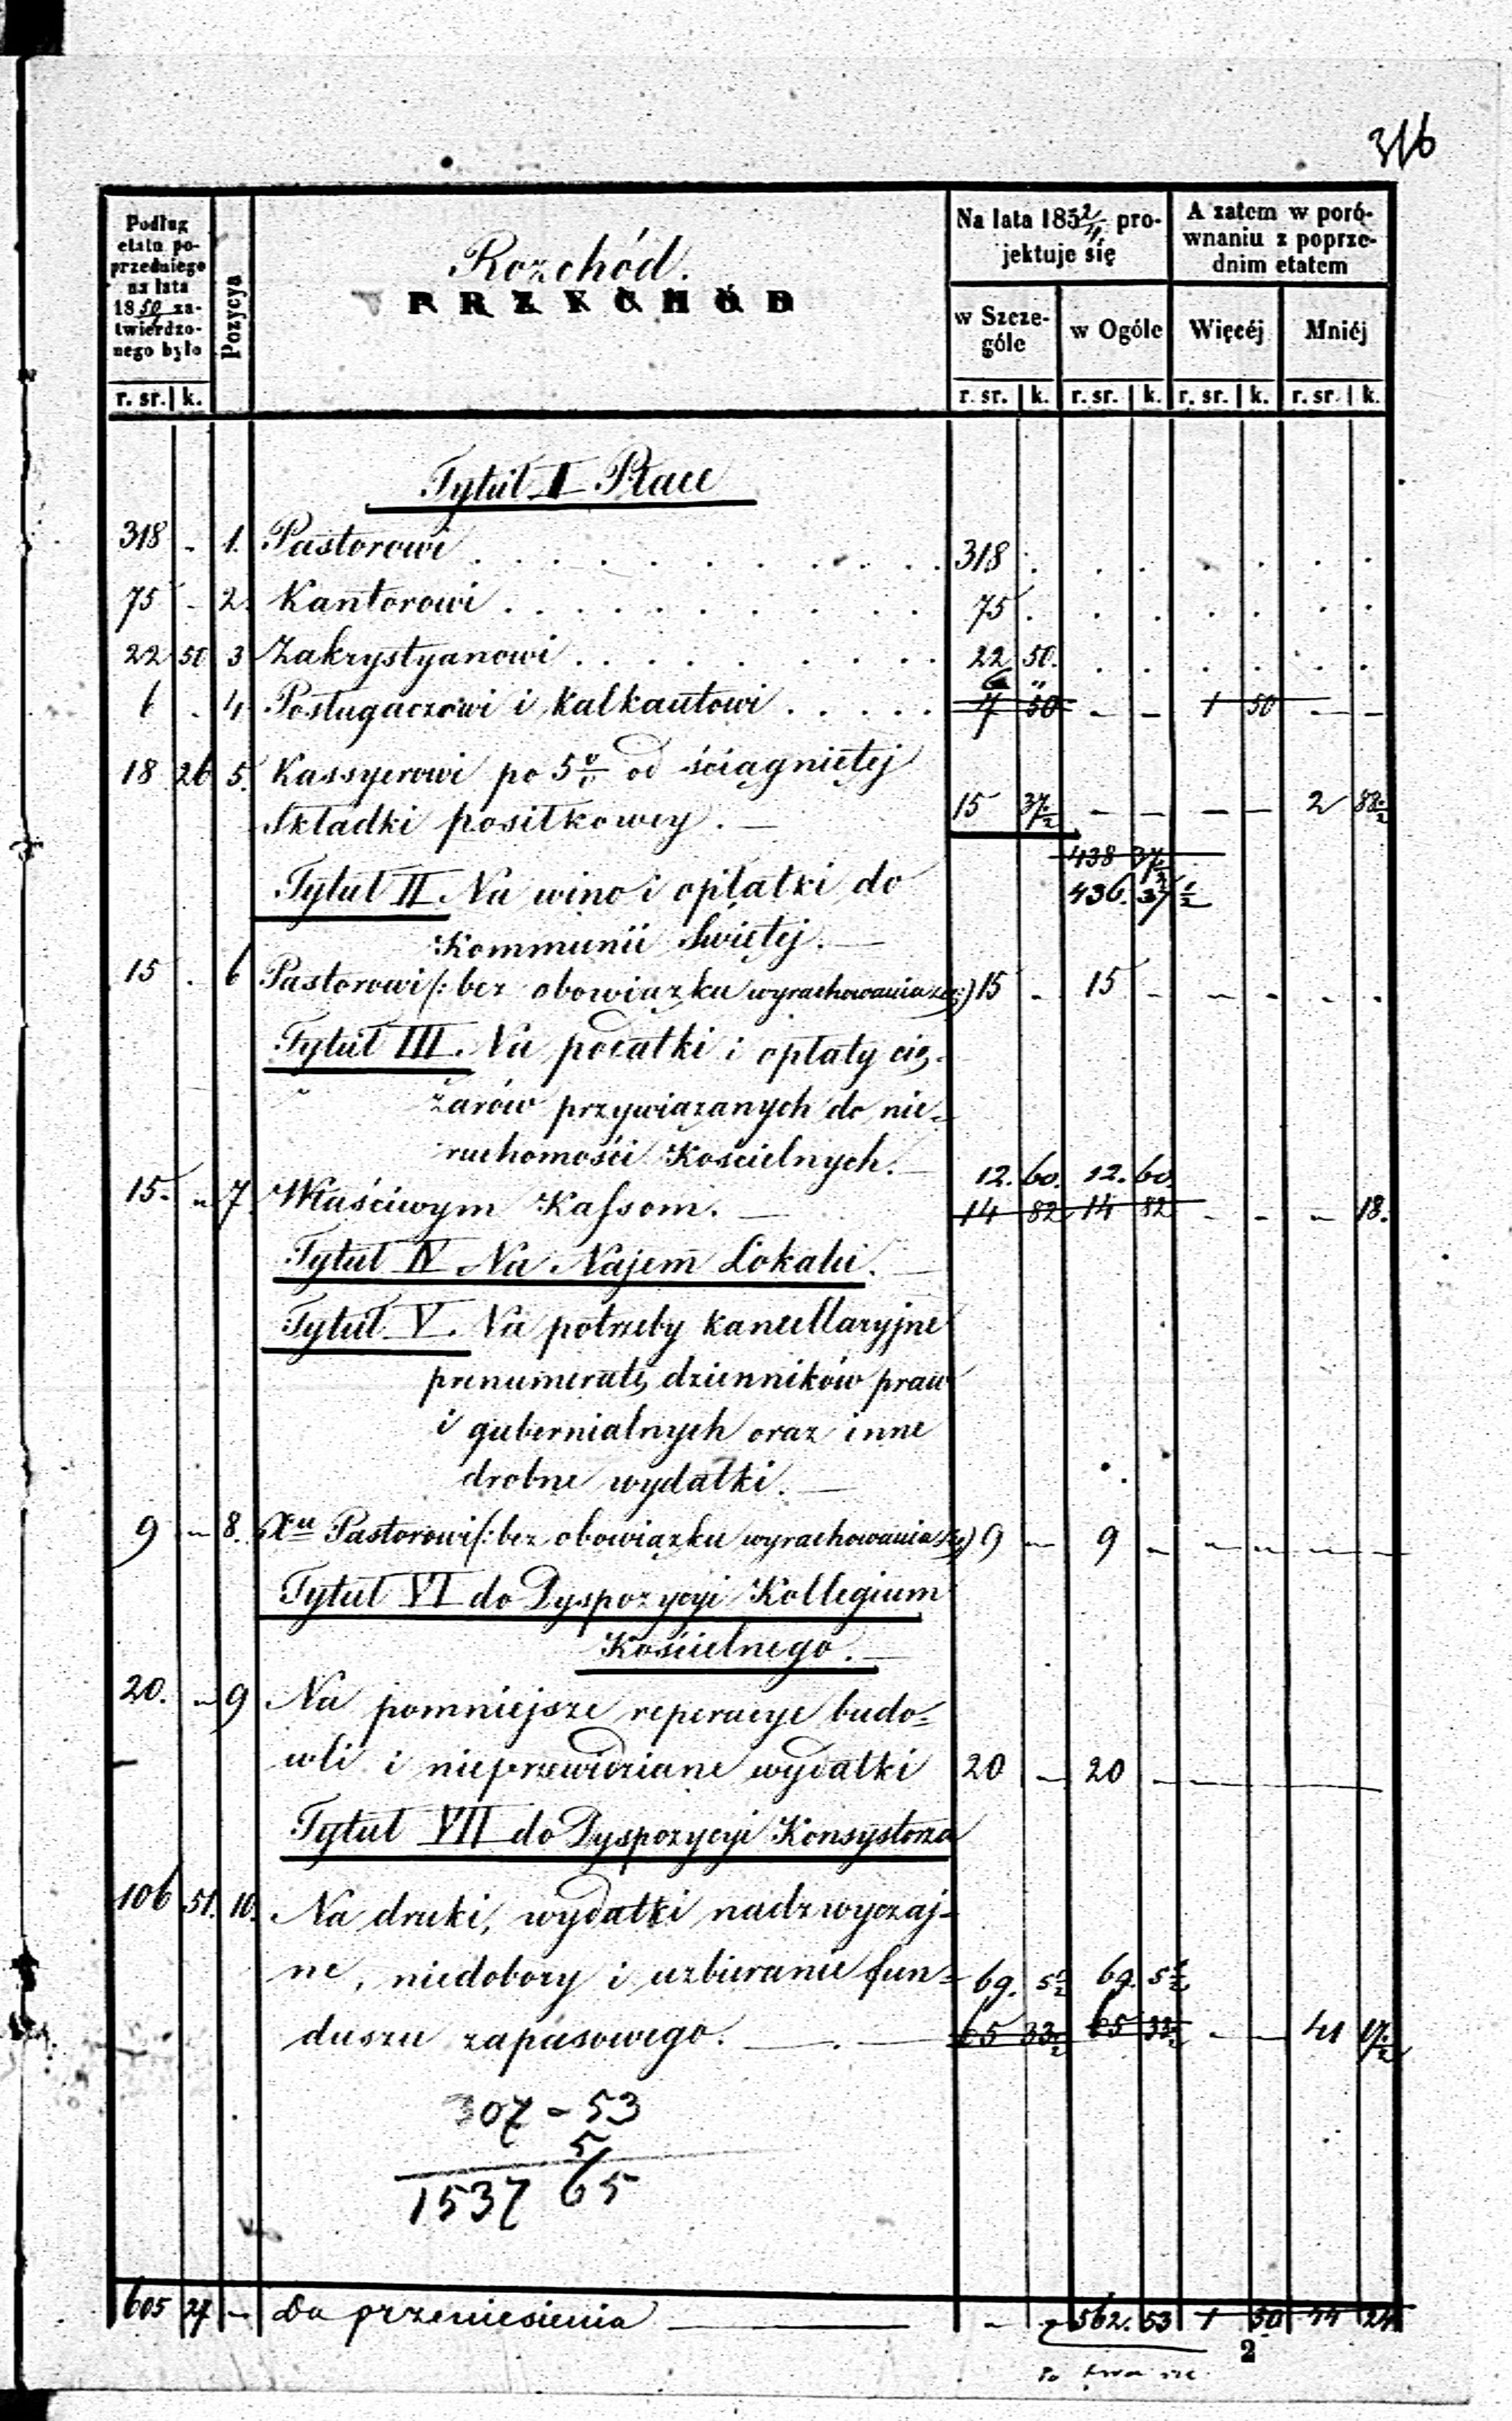 316
Podług etatu poprzedniego na lata 18 50 zatwierdzonego było
Pozycya
Rozchód.
PRZYCHÓD
Na lata 185 projektuje się
A zatem w porównaniu z poprzednim etatem
w Szczególe | w Ogóle | Więcéj | Mniéj
r. sr. | k. | r. sr. | k. | r. sr. | k. | r. sr. | k. | r. sr. | k.
Tytuł I Płace
318 - 1. Pastorowi . . . 318 .
75 - 2. Kantorowi . . . 75 .
22 50 3 Zakrystyanowi . . . 22 50.
6 "
6 . 4 Posługaczowi i Kalkantowi . . . 7 50 - - 1 50 - -
18 26 5. Kassyerowi po 5 % od ściągniętej
Składki posiłkowey. — 15 37 1/2 - - - - 2 88 1/2
438 37 1/2
Tytuł II. Na wino i opłatki do 436. 37 1/2
Kommunii Świętej. —
15 . 6 Pastorowi (: bez obowiązku wyrachowania się :) 15 - 15 - - - . .
Tytuł III. Na podatki i opłaty cię-
żarów przywiązanych do nie-
ruchomości Kościelnych. —
12. 60. 12. 60.
15 - " 7 Właściwym Kassom. — 14 82 14 82 - - - 18.
Tytuł IV Na Najem Lokalu. —
Tytuł V. Na potrzeby kancellaryjne
prenumeratę dzienników praw
i gubernialnych oraz inne
drobne wydatki. —
9 - 8. Xu Pastorowi (: bez obowiązku wyrachowania się :) 9 - 9 - - - - -
Tytuł VI do Dyspozycyi Kollegium
Kościelnego. —
20. - 9 Na pomniejsze reperacye budo-
wli i nieprzewidziane wydatki 20 - 20 - -
Tytuł VII do Dyspozycyi Konsystorza
106 51. 10. Na druki, wydatki nadzwyczaj-
ne, niedobory i uzbieranie fun- 69. 5 1/2 69. 5 1/2
duszu zapasowego. — 65 33 1/2 65 33 1/2 - - 41 17 1/2
307 - 53
5
1537 65
605 27 - Do przeniesienia — - - 562. 53 1 50 44 24
2